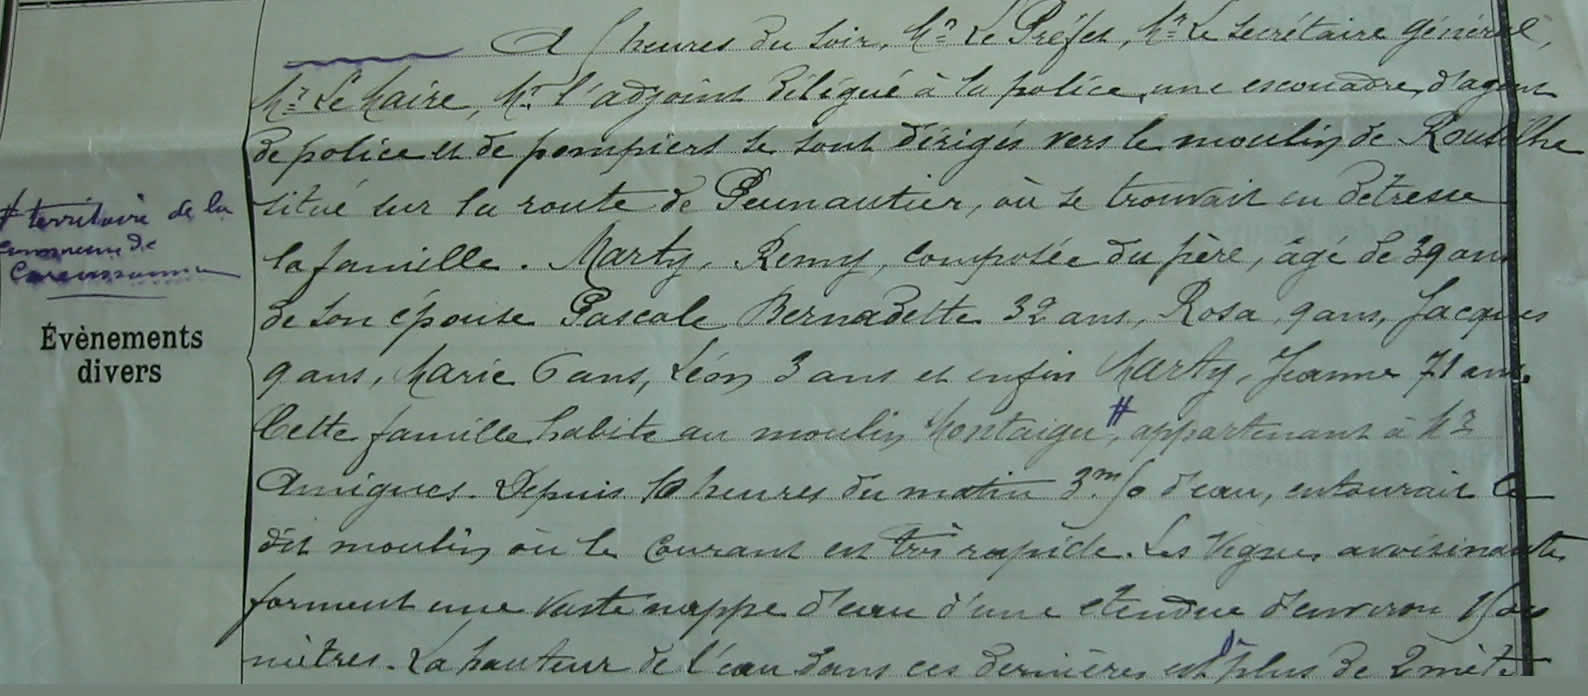 A 5 heures du soir, Mr Le Préfet, Mr Le secrétaire général,
Mr Le Maire, Mr l'adjoint délégué à la police, une escouadre, d'agent
de police et de pompiers se sont dirigés vers le moulin de
situé sur la route de Pennautier, où se trouvait en détresse
la famille. Marty, Remy, composée du père, âgé de 39 ans
de son épouse Pascale Bernadette 32 ans, Rosa, 9 ans, Jacques
9 ans, Marie 6 ans, Léon 3 ans et enfin Marty, Jeanne 71 ans.
Cette famille habite au moulin Montaigu #, appartenant à Mr
Amigues. Depuis 10 heures du matin 3.m 50 d'eau, entourait le
dit moulin où le courant est très rapide. Les vignes avoisinantes
forment une vaste nappe d'eau d'une étendue d'environ
mètres. La hauteur de l'eau dans ces dernières est de plus de 2 mèt
# territoire de la
commune de
Carcassonne
Évènements
divers